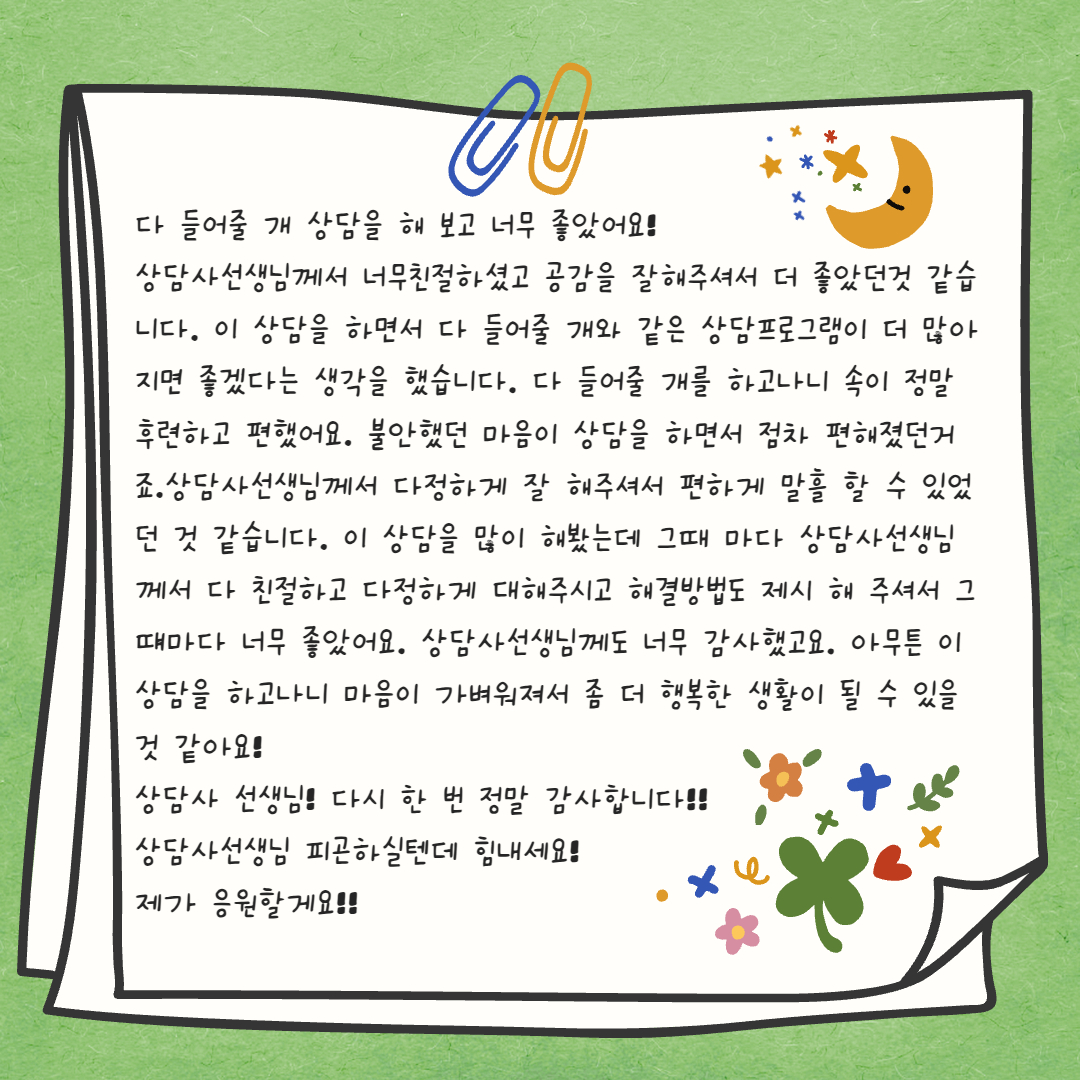 다 들어줄 개 상담을 해 보고 너무 좋았어요!
상담사선생님께서 너무친절하셨고 공감을 잘해주셔서 더 좋았던것 같습
니다. 이 상담을 하면서 다 들어줄 개와 같은 상담프로그램이 더 많아
지면 좋겠다는 생각을 했습니다. 다 들어줄 개를 하고나니 속이 정말
후련하고 편했어요. 불안했던 마음이 상담을 하면서 점차 편해졌던거
죠.상담사선생님께서 다정하게 잘 해주셔서 편하게 말흘 할 수 있었
던 것 같습니다. 이 상담을 많이 해봤는데 그때 마다 상담사선생님
께서 다 친절하고 다정하게 대해주시고 해결방법도 제시 해 주셔서 그
떄마다 너무 좋았어요. 상담사선생님께도 너무 감사했고요. 아무튼 이
상담을 하고나니 마음이 가벼워져서 좀 더 행복한 생활이 될 수 있을
것 같아요!
상담사 선생님! 다시 한 번 정말 감사합니다!!
상담사선생님 피곤하실텐데 힘내세요!
제가 응원할게요!!